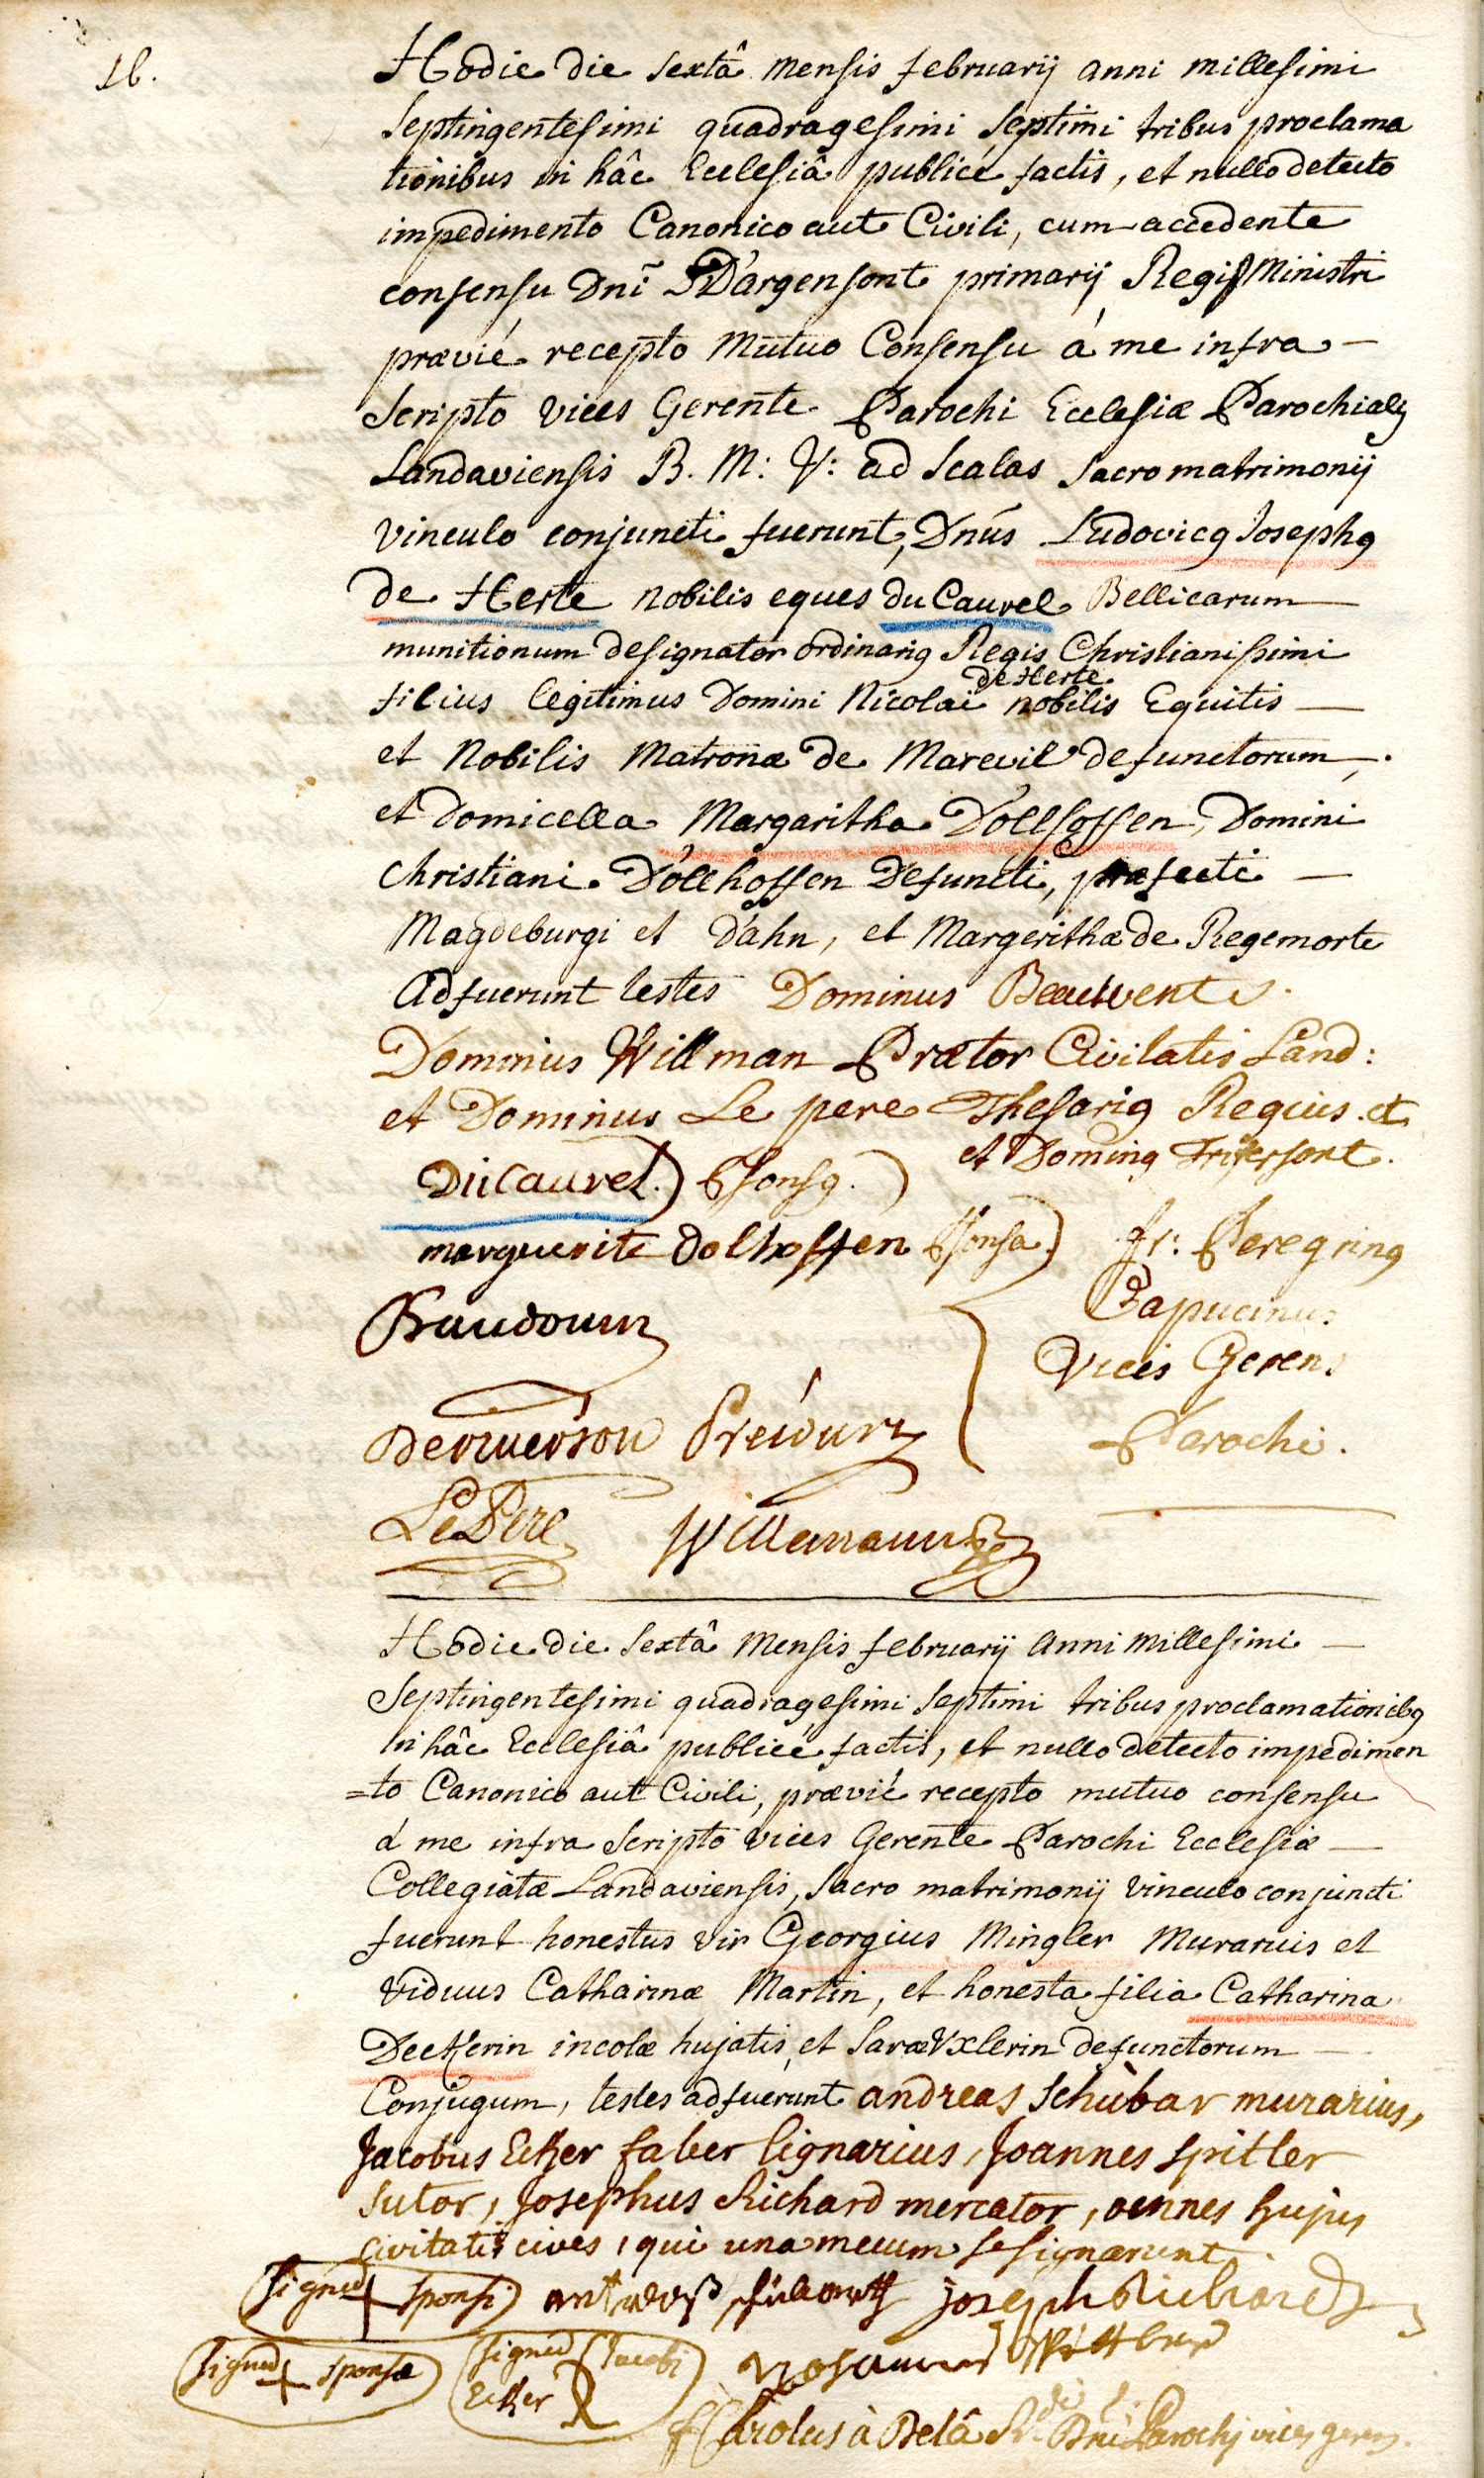 16.
Hodie die sextâ mensis februarij anni millesimi
Septingentesimi quadragesimi septimi tribus proclama
tionibus in hâc Ecclesiâ publicè factis, et nullo detecto
impedimento Canonico aut Civili, cum accedente
consensu Dni D'argensont primarij Regis Ministri
præviè recepto mutuo Consensu à me infra
scripto vices Gerente Parochi Ecclesiæ Parochialis
Landaviensis B. M: V: ad Scalas sacro matrimonij
vinculo conjuncti fuerunt, Dnus Ludovicq Josephq
de Herte nobilis eques du Caurel Bellicarum
munitionum designator ordinariq Regis Christianissimi
filius legitimus Domini Nicolai de Herte nobilis Equitis
et Nobilis Matronæ de Marevil defunctorum,
et domicella Margaritha D'ollhoffen, Domini
Christiani D'ollhoffen Defuncti, præfecti
Magdeburgi et D'ahn, et Margerithæ de Regemorte
Adfuerunt testes Dominus
Dominus Willman Prætor Civitatis Land:
et Dominus Le pere Thesariq Regius et
et Dominq
DuCaurel) Sponsq.)
marguerite dolhoffen Sponsa)
fr: Peregrinq
Capucinus
Vices Gerens
Parochi.
Baudouin
LePere Willemann
Hodie die sextâ Mensis februarij Anni millesimi
Septingentesimi quadragesimi septimi tribus proclamationibq
in hâc Ecclesiâ publicè factis, et nullo detecto impedimen
=to Canonico aut Civili, præviè recepto mutuo consensu
à me infra scripto vices Gerente Parochi Ecclesiæ
Collegiatæ Landaviensis, sacro matrimonij vinculo conjuncti
fuerunt honestus vir Georgius Mingler Murarius et
viduus Catharinæ Martin, et honesta filia Catharina
Deckerin incolæ hujatis, et Saræ Vxlerin defunctorum
Conjugum, testes adfuerunt andreas Schùbar murarius,
Jacobus Ecker faber lignarius, Joannes Spitler
sutor, Josephus Richard mercator, omnes hujus
civitatis cives, qui una mecum se signarunt.
signum + sponsi joseph Richard
signum + sponsæ signum Jacobi
Ecker
f Carolus à Belâ Rdi Dni Parochj vices gerens.